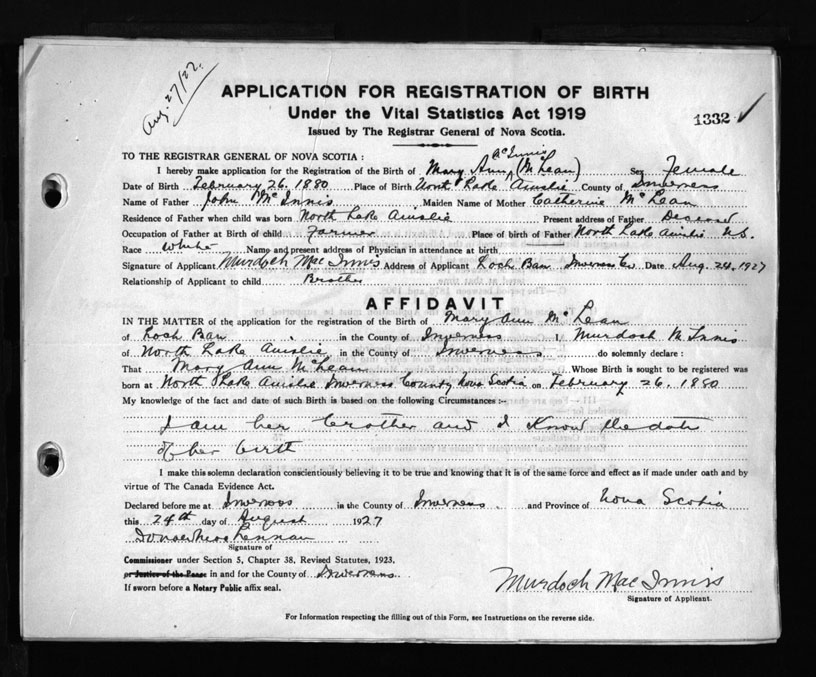 Aug. 27/27.
APPLICATION FOR REGISTRATION OF BIRTH
Under the Vital Statistics Act 1919
1332 ✓
Issued by The Registrar General of Nova Scotia.
TO THE REGISTRAR GENERAL OF NOVA SCOTIA :
McInnis
I hereby make application for the Registration of the Birth of Mary Ann (McLean) Sex Female
Date of Birth February 26. 1880 Place of Birth North Lake Ainslie County of Inverness
Name of Father John McInnis Maiden Name of Mother Catherine McLean
Residence of Father when child was born North Lake Ainslie Present address of Father
Occupation of Father at Birth of child Farmer Place of Birth of Father North Lake Ainslie N.S.
Race White Name and present address of Physician in attendance at birth
Signature of Applicant Murdoch MacInnis Address of Applicant Loch Ban Inverness Co Date Aug. 24, 1927
Relationship of Applicant to child Brother
AFFIDAVIT
IN THE MATTER of the application for the registration of the Birth of Mary Ann McLean
of Loch Ban in the County of Inverness I, Murdoch McInnis
of North Lake Ainslie in the County of Inverness do solemnly declare :
That Mary Ann McLean Whose Birth is sought to be registered was
born at North Lake Ainslie Inverness County Nova Scotia on February 26. 1880
My knowledge of the fact and date of such Birth is based on the following Circumstances :-
I am her brother and I know the date
of her birth
I make this solemn declaration conscientiously believing it to be true and knowing that it is of the same force and effect as if made under oath and by
virtue of The Canada Evidence Act.
Declared before me at Inverness in the County of Inverness. and Province of Nova Scotia
this 24th day of August 1927
Signature of
Commissioner under Section 5, Chapter 38, Revised Statutes, 1923,
or Justice of the Peace in and for the County of Inverness
If sworn before a Notary Public affix seal.
Murdoch MacInnis
Signature of Applicant.
For Information respecting the filling out of this Form, see Instructions on the reverse side.